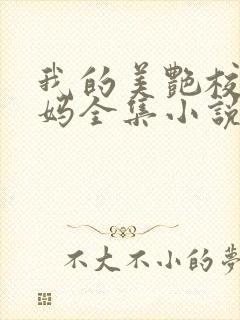 我的美艷校
妈全集小說
不大不小的夢